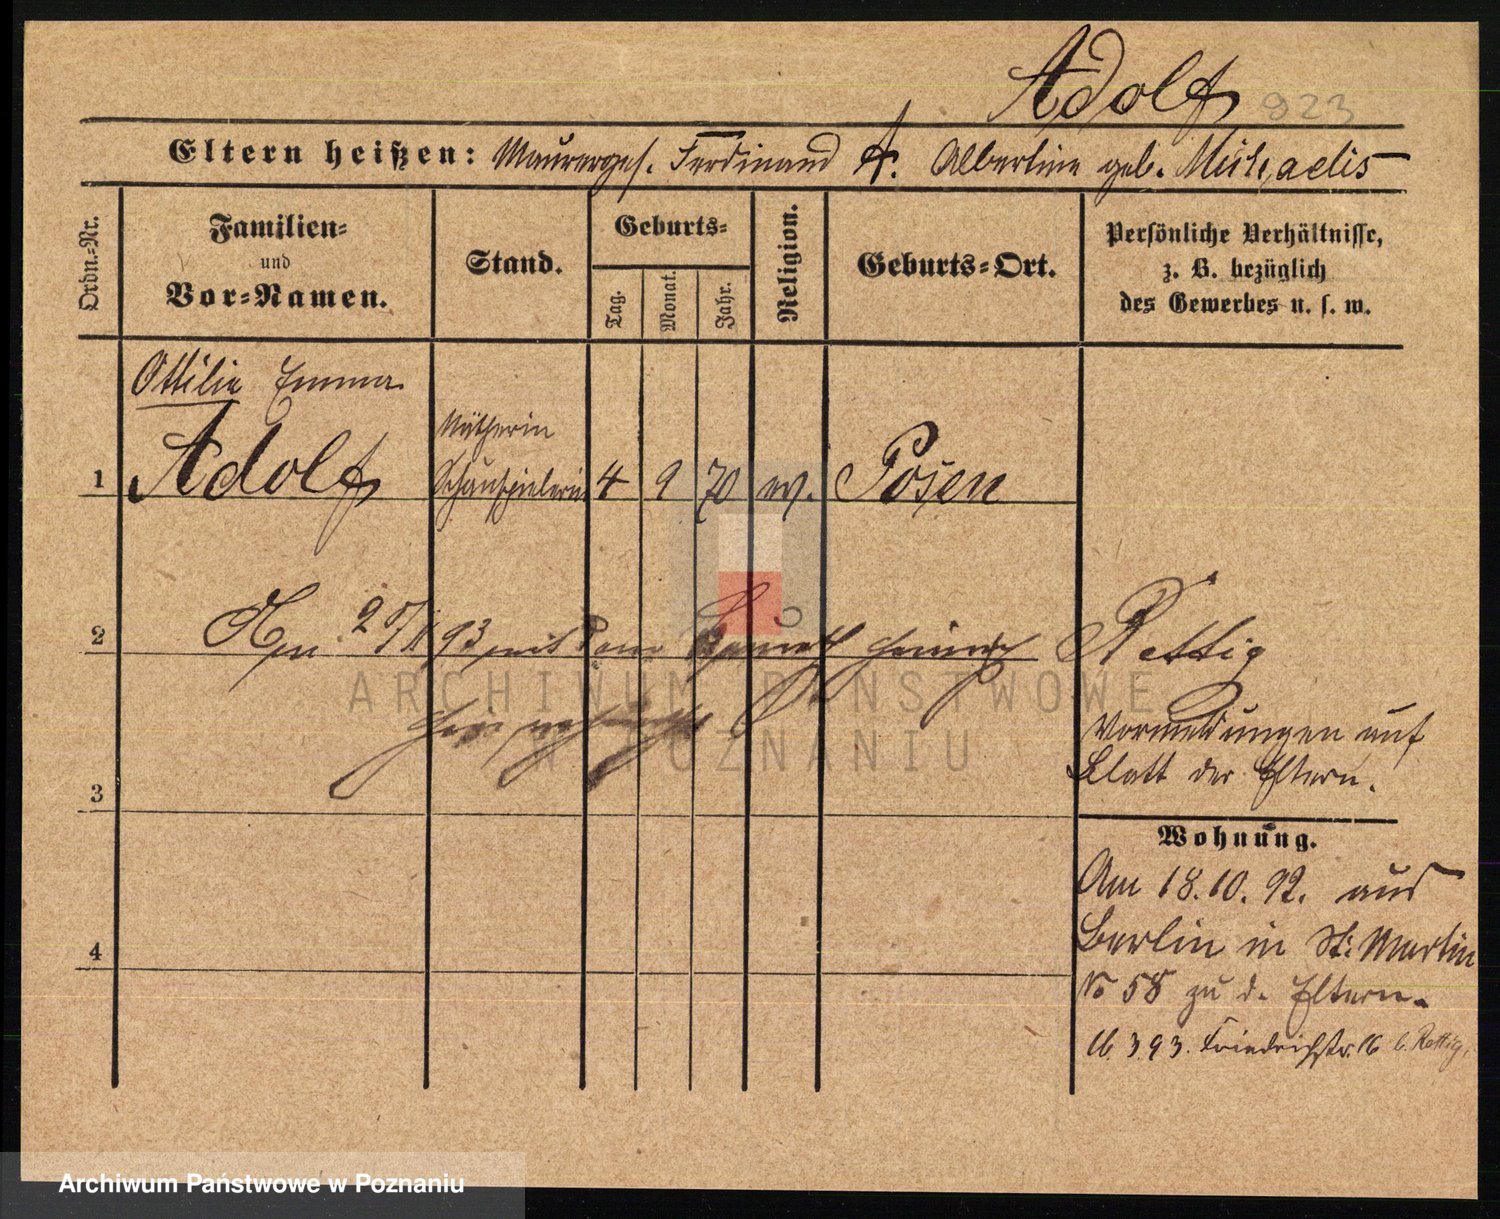 Adolf 923
Eltern heißen: Maurerges. Ferdinand A. Albertine geb. Michaelis
Ordn.-Nr.
Familien-
und
Vor-Namen.
Stand.
Geburts-
Tag.
Monat.
Jahr.
Religion.
Geburts-Ort.
Persönliche Verhältnisse,
z. B. bezüglich
des Gewerbes u. s. w.
Ottilie Emma
Adolf
Nätherin
Schauspielerin
1 4 9 70 ev. Posen
2 93 mit dem Rettig
Vormeldungen auf
Blatt der Eltern.
3
Wohnung.
Am 18.10.92. aus
Berlin in St. Martin
No 58 zu d. Eltern.
16.3.93. Friedrichstr. 16 b. Rettig.
4
ARCHIWUM PAŃSTWOWE
W POZNANIU
Archiwum Państwowe w Poznaniu